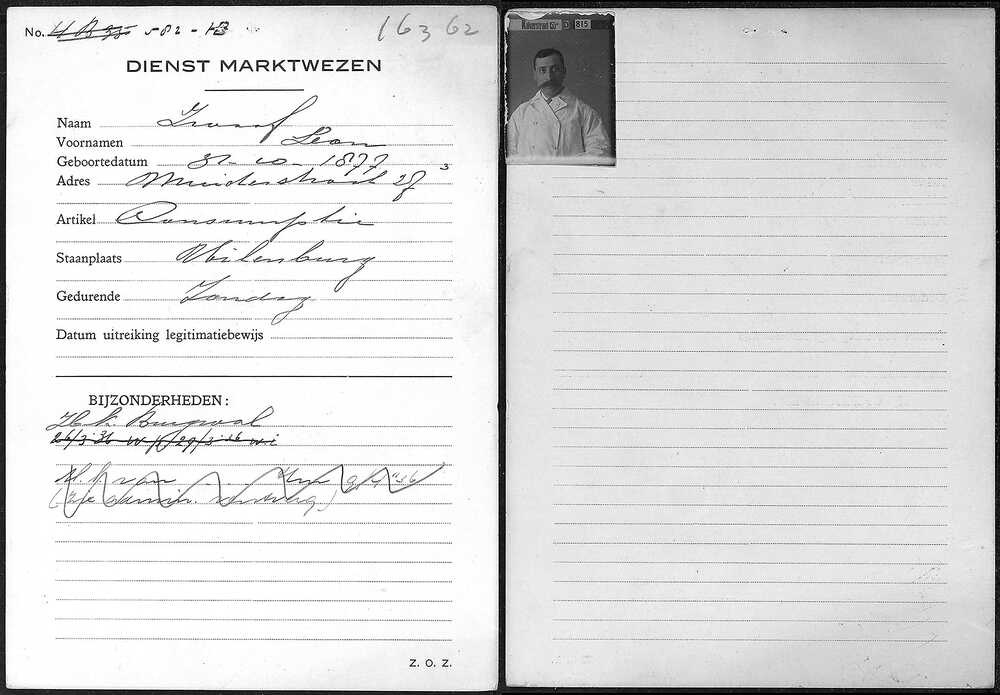 No. 4 B 35 582 - 13
16362
DIENST MARKTWEZEN
Naam
Voornamen Leon
Geboortedatum 31-10-1877
Adres Muiderstraat 27 3
Artikel Consumptie
Staanplaats Uilenburg
Gedurende Zondag
Datum uitreiking legitimatiebewijs
BIJZONDERHEDEN:
H. k. Burgwal
26/3 36
29/3
(zie admin.
Z. O. Z.
815